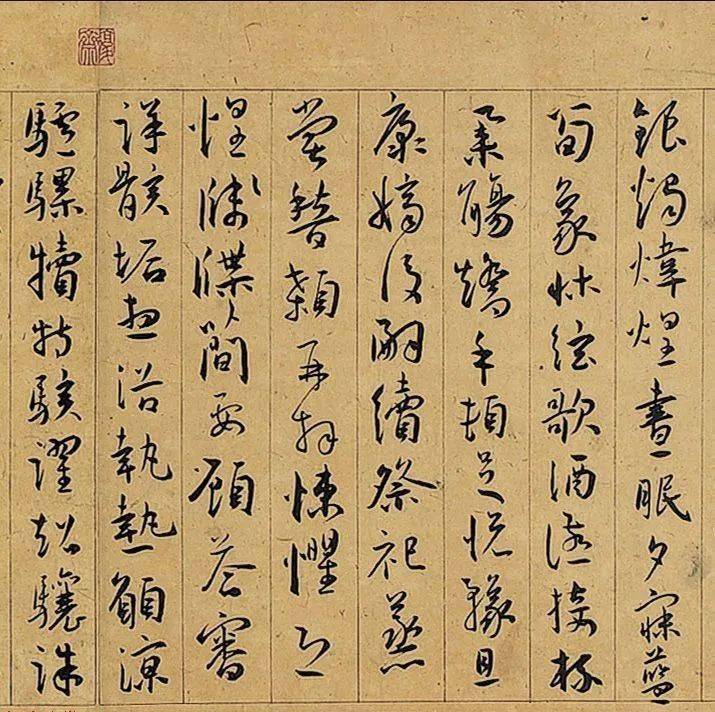 銀燭煒煌晝眠夕寐藍
筍象床絃歌酒讌接杯
舉觴矯手頓足悅豫且
康嫡後嗣續祭祀蒸
嘗稽顙再拜悚懼恐
惶牋牒簡要顧答審
詳骸垢想浴執熱願涼
驢騾犢特駭躍超驤誅